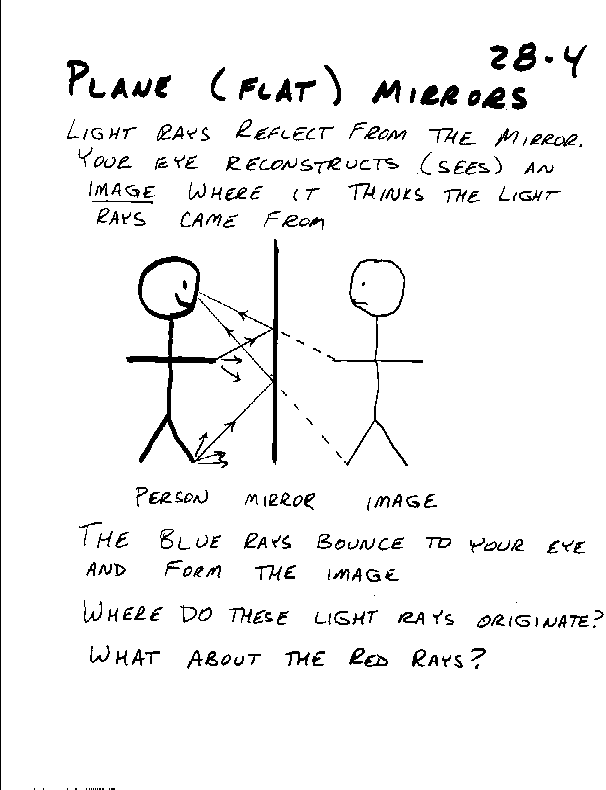 28-4
PLANE (FLAT) MIRRORS
LIGHT RAYS REFLECT FROM THE MIRROR.
YOUR EYE RECONSTRUCTS (SEES) AN
IMAGE WHERE IT THINKS THE LIGHT
RAYS CAME FROM
PERSON MIRROR IMAGE
THE BLUE RAYS BOUNCE TO YOUR EYE
AND FORM THE IMAGE
WHERE DO THESE LIGHT RAYS ORIGINATE?
WHAT ABOUT THE RED RAYS?